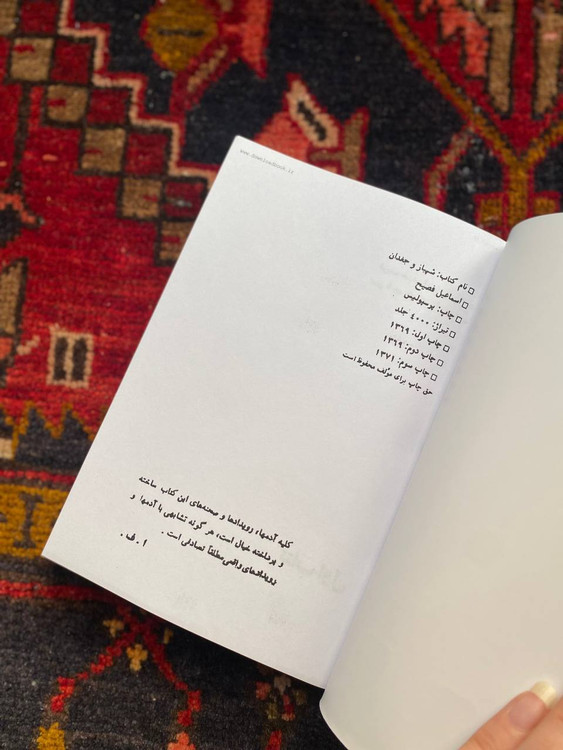 www.downloadbook.ir
□ نام کتاب: شهباز و جغدان
□ اسماعیل فصیح
□ چاپ: پرسپولیس
□ تیراژ: ۴۰۰۰ جلد
□ چاپ اول: ۱۳۶۹
□ چاپ دوم: ۱۳۶۹
□ چاپ سوم: ۱۳۷۱
حق چاپ برای مؤلف محفوظ است
کلیه آدمها، رویدادها و صحنه‌های این کتاب ساخته
و پرداخته خیال است، هر گونه تشابهی با آدمها و
رویدادهای واقعی مطلقاً تصادفی است.
ا . ف .